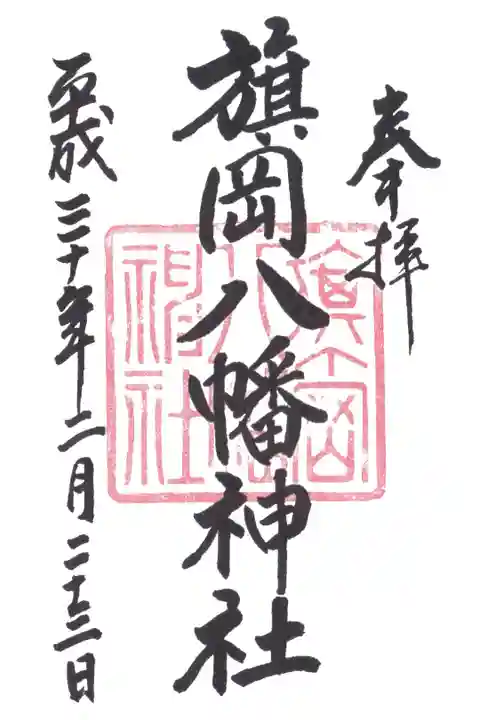 奉拝
旗岡八幡神社
旗岡八幡神社
平成三十年二月二十三日